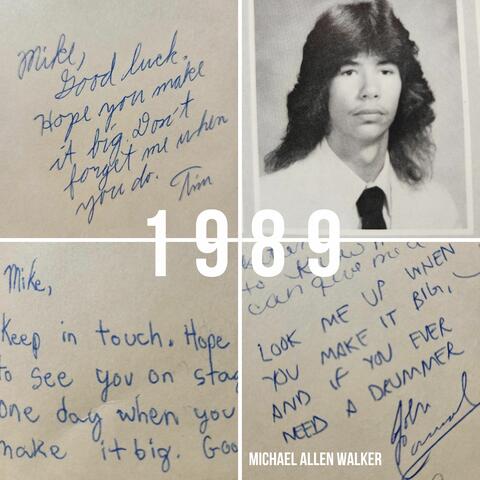 Mike,
Good luck.
Hope you make
it big. Don't
forget me when
you do. Tim
1989
Mike,
Keep in touch. Hope
to see you on stag
one day when you
make it big. Goo
to know
can give me a
LOOK ME UP WHEN
YOU MAKE IT BIG,
AND IF YOU EVER
NEED A DRUMMER
John
MICHAEL ALLEN WALKER